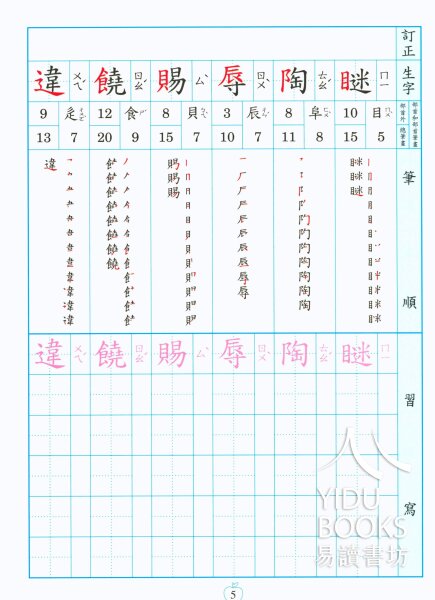 訂正
生字
部首和部首筆畫
部首外
總筆畫
筆順
習寫
瞇 ㄇㄧ
目 10
5 15
陶 ㄊㄠˊ
阜 8
8 11
辱 ㄖㄨˋ
辰 3
7 10
賜 ㄙˋ
貝 8
7 15
饒 ㄖㄠˊ
食 12
9 20
違 ㄨㄟˊ
辵 9
7 13
瞇 ㄇㄧ
陶 ㄊㄠˊ
辱 ㄖㄨˋ
賜 ㄙˋ
饒 ㄖㄠˊ
違 ㄨㄟˊ
YIDU
BOOKS
易讀書坊
5